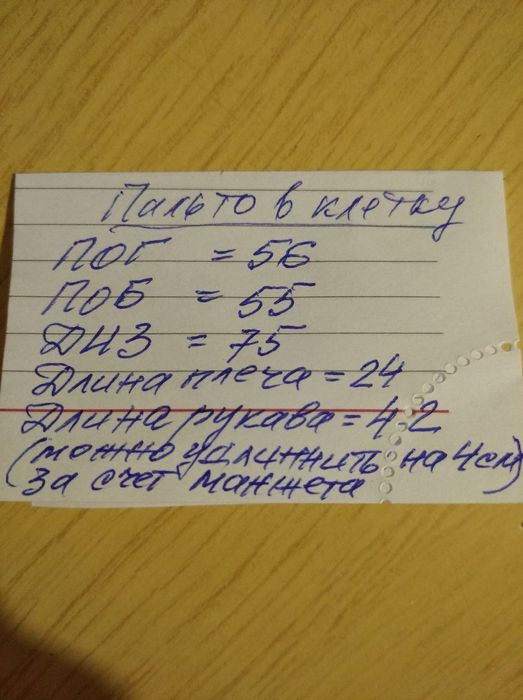 Пальто в клетку
ПОГ = 56
ПоБ = 55
ДИЗ = 75
Длина плеча = 24
Длина рукава = 42
(можно удлинжить на 4см
за счет манжета)